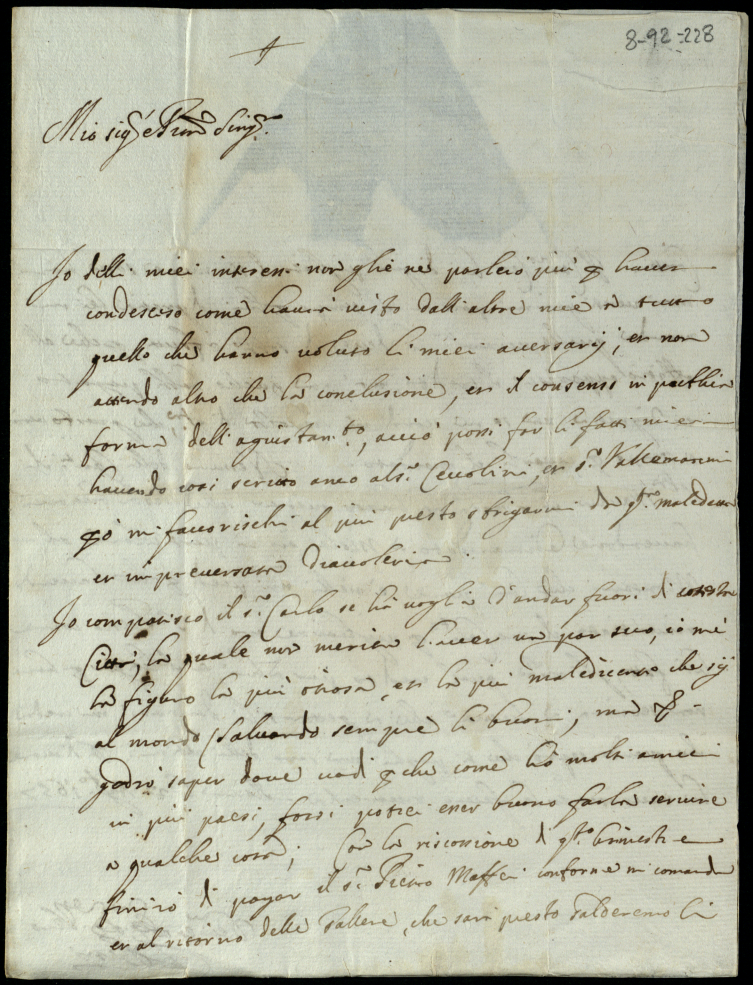 8-92-228
Mio sig.r e Pron Sing.r
Io delli miei interessi non glie ne parlerò più haver
condesceso come haverà visto dall'altre mie a tutto
quello che hanno voluto li miei aversarij, et non
attendo altro che la conclusione, et il consenso in
forma dell'aguistam.to, acciò possi far li fatti miei
havendo così scritto anco al s.r Cevolini, et s.r Vallemanni
mi favorischi al più presto sbrigarmi da q.ta maledetta
et imperversata Diavoleria.
Io compatisco il s.r Carlo se hà voglia d'andar fuori di cotesta
Città, la quale non merita haver un par suo, io me
la figuro la più otiosa, et la più maledicente che sij
al mondo (salvando sempre li buoni, mà
godrò saper dove vadi che come hò molti amici
in più paesi, forsi potrei esser buono farla servire
a qualche cosa; Con la riscossione di q.to
finirò di pagar il s.r Pietro Maffei conforme mi comanda
et al ritorno delle Galere, che sarà presto salderemo li